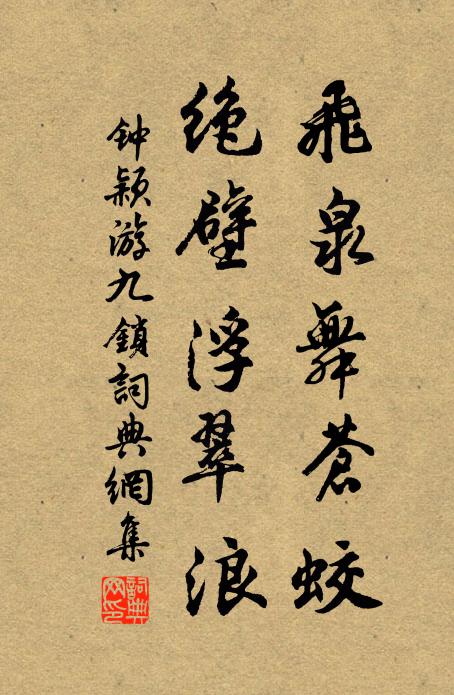 飛泉舞蒼蛟
绝壁浮翠浪
钟颖游九鎖詞典網集
詞典網印